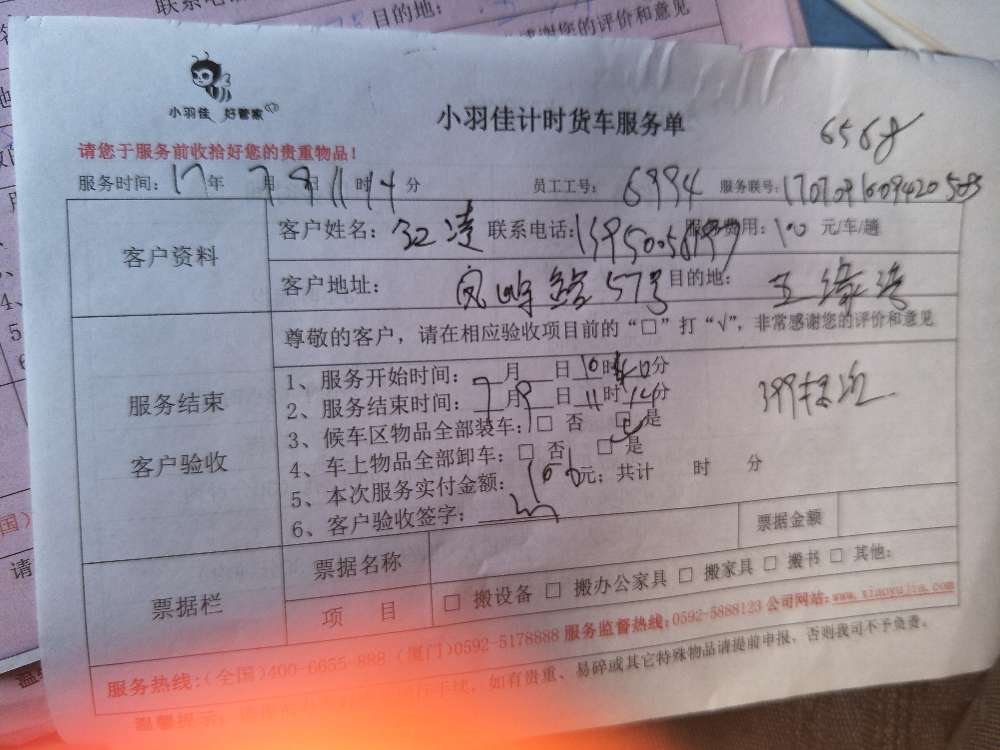 目的地：
感谢您的评价和意见
小羽佳 好管家
小羽佳计时货车服务单
6568
请您于服务前收拾好您的贵重物品！
服务时间：17年 7月 9日 11时14分 员工工号：6994 服务联号：
客户资料
客户姓名： 联系电话： 服务费用：100 元/车/趟
客户地址： 57号 目的地：
服务结束
客户验收
尊敬的客户，请在相应验收项目前的“□”打“√”，非常感谢您的评价和意见
1、服务开始时间： 月 日10时40分
2、服务结束时间：7月9日11时14分
3、候车区物品全部装车：□ 否 □ 是
4、车上物品全部卸车：□ 否 □ 是
5、本次服务实付金额：100元；共计 时 分
6、客户验收签字：
票据栏
票据名称 票据金额
项 目 □ 搬设备 □ 搬办公家具 □ 搬家具 □ 搬书 □ 其他：
服务热线：（全国）400-6655-888 （厦门）0592-5178888 服务监督热线：0592-5888123 公司网站：www.xiaoyujia.com
温馨提示： 如有贵重、易碎或其它特殊物品请提前申报，否则我司不予负责。